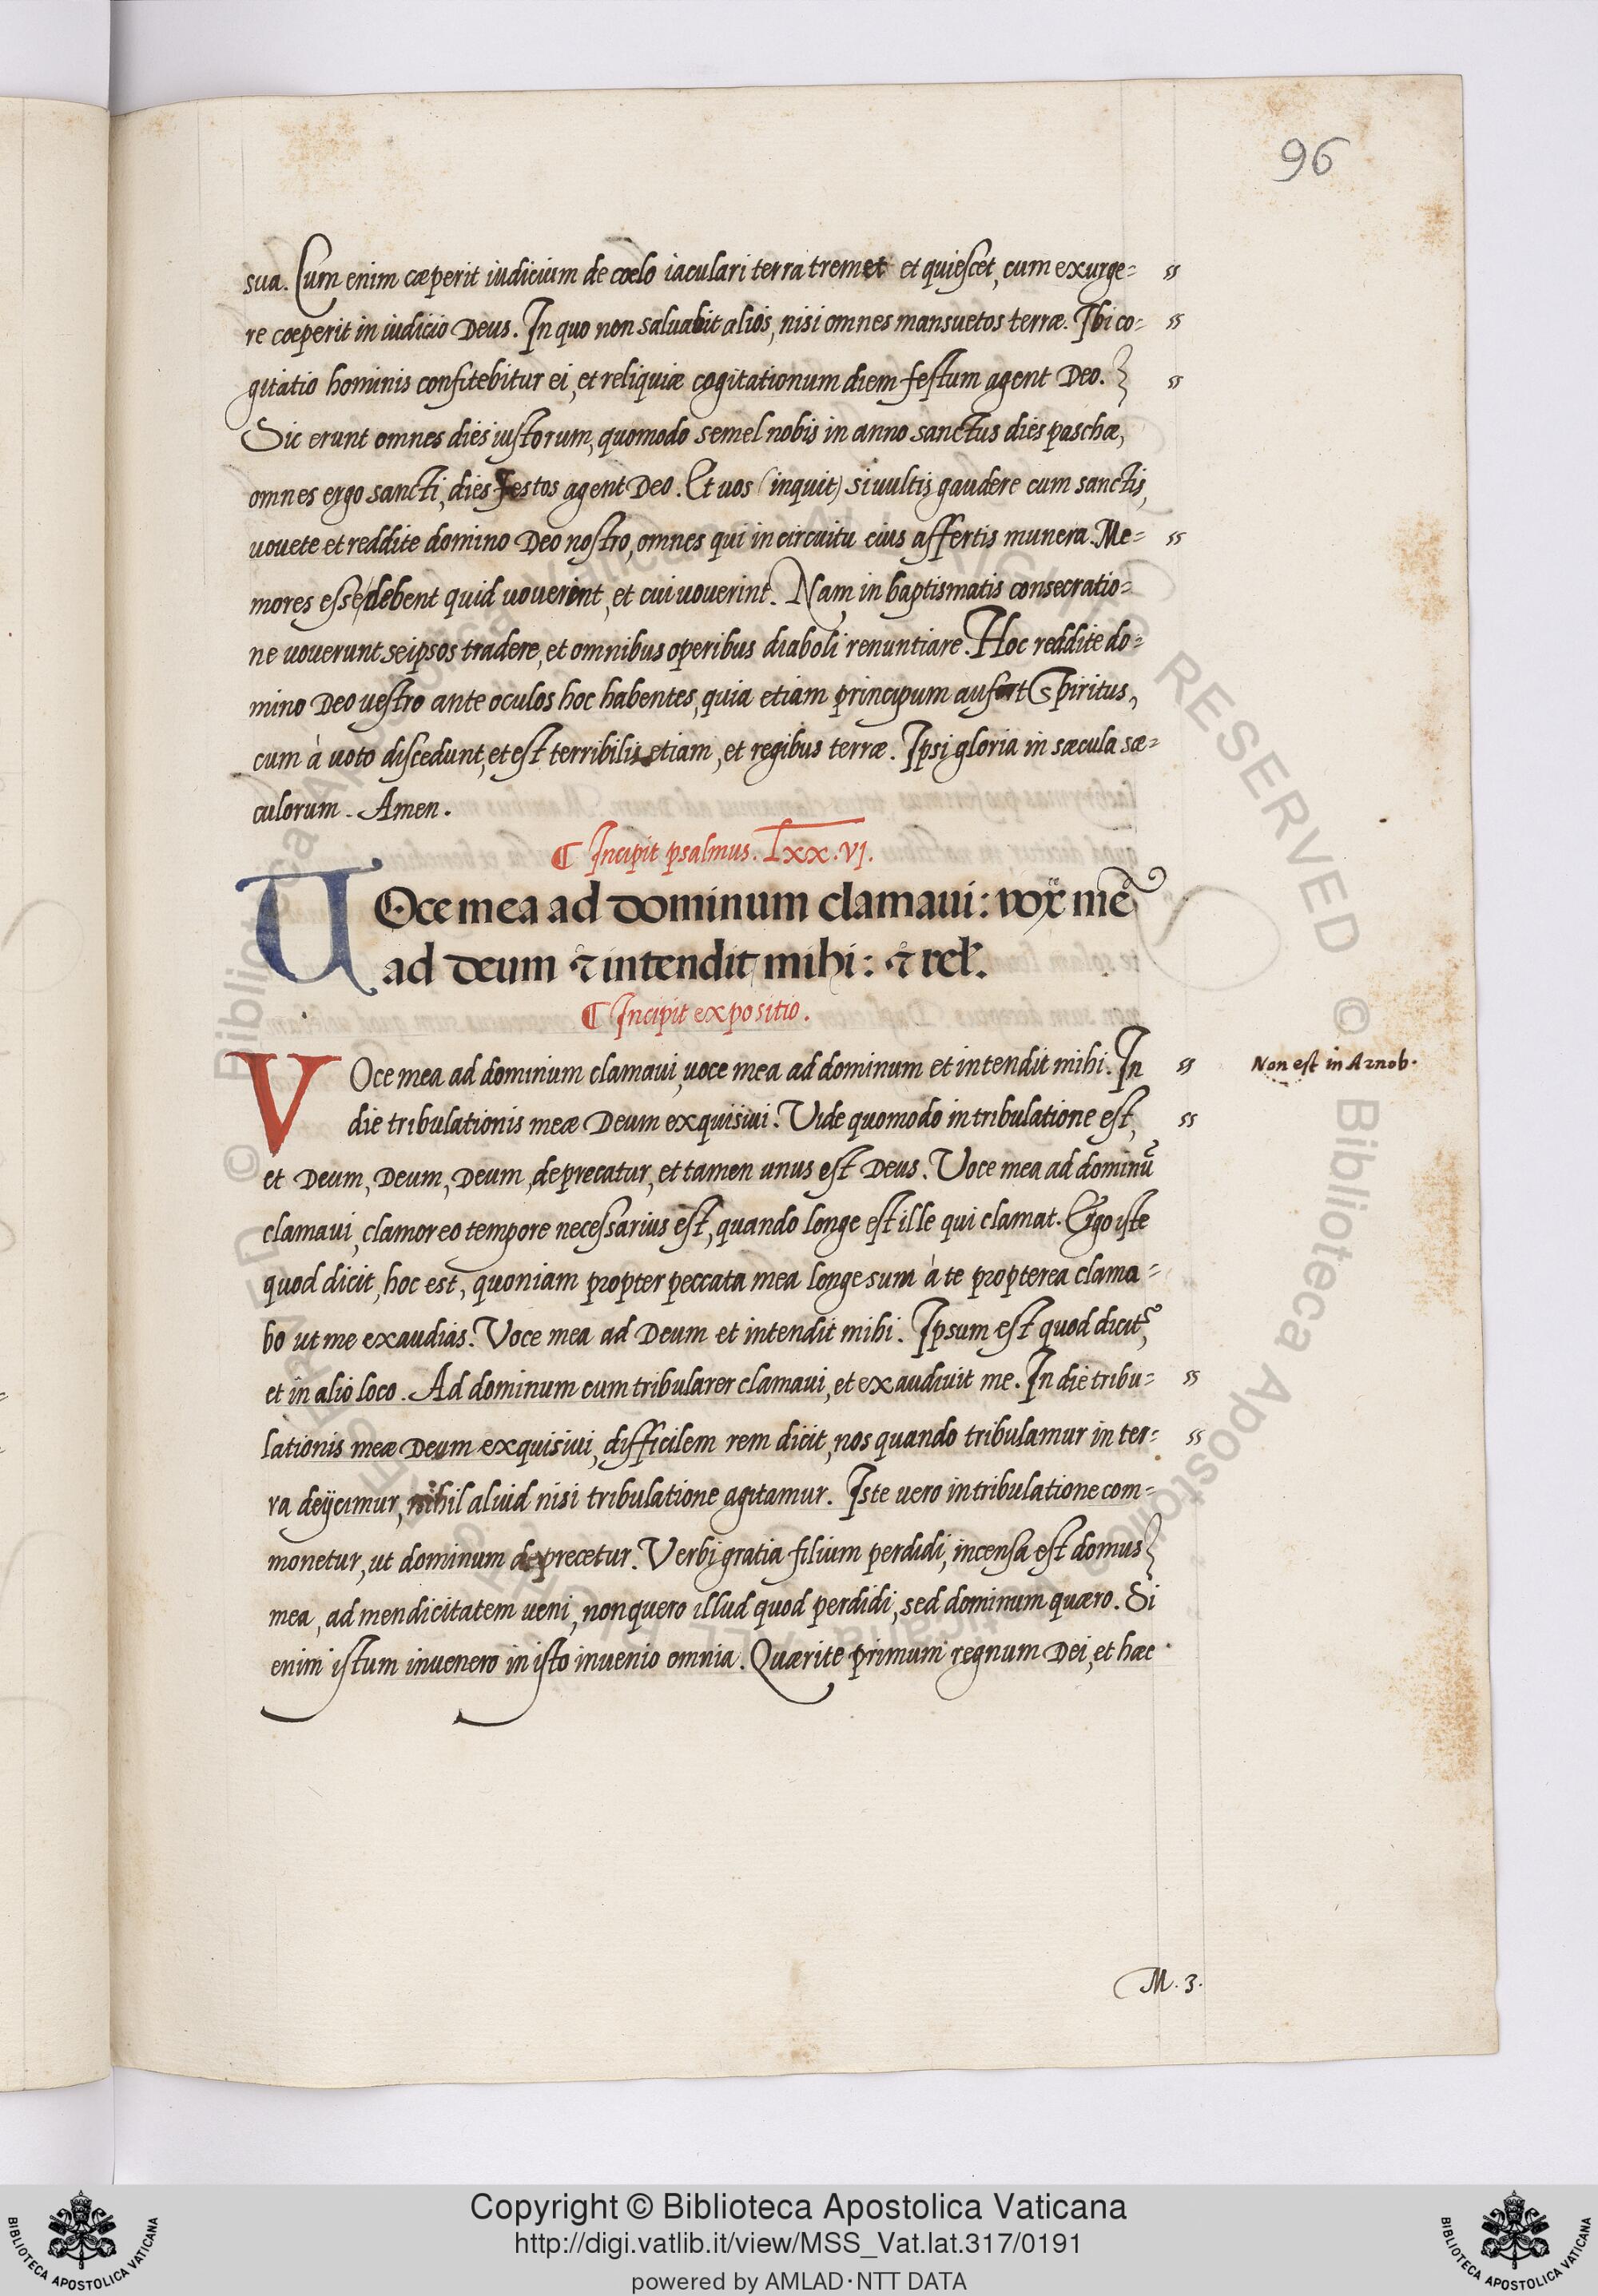 96
sua. Cum enim cæperit iudicium de cœlo iaculari terra tremet et quiescet, cum exurge= ss
re cœperit in iudicio Deus. In quo non saluabit alios, nisi omnes mansuetos terræ. Ibi co= ss
gitatio hominis confitebitur ei, et reliquiæ cogitationum diem festum agent Deo. ss
Sic erunt omnes dies iustorum, quomodo semel nobis in anno sanctus dies paschæ,
omnes ergo sancti, dies festos agent Deo. Et uos (inquit) si uultis gaudere cum sanctis,
uouete et reddite domino Deo nostro, omnes qui in circuitu eius affertis munera. Me= ss
mores esse debent quid uouerint, et cui uouerint. Nam in baptismatis consecratio=
ne uouerunt seipsos tradere, et omnibus operibus diaboli renuntiare. Hoc reddite do=
mino Deo uestro ante oculos hoc habentes, quia etiam principum aufert Spiritus,
cum à uoto discedunt, et est terribilis etiam, et regibus terræ. Ipsi gloria in sæcula sæ=
culorum. Amen.
¶ Incipit psalmus. Lxx.vj.
UOce mea ad dominum clamaui: vox mea
ad deum & intendit mihi: & rel.
¶ Incipit expositio.
VOce mea ad dominum clamaui, uoce mea ad dominum et intendit mihi. In ss Non est in Arnob.
die tribulationis meæ Deum exquisiui. Vide quomodo in tribulatione est, ss
et Deum, Deum, Deum, deprecatur, et tamen unus est Deus. Voce mea ad dominũ
clamaui, clamor eo tempore necessarius est, quando longe est ille qui clamat. Ergo iste
quod dicit, hoc est, quoniam propter peccata mea longe sum à te propterea clama=
bo ut me exaudias. Voce mea ad Deum et intendit mihi. Ipsum est quod dicit,
et in alio loco. Ad dominum cum tribularer clamaui, et exaudiuit me. In die tribu= ss
lationis meæ Deum exquisiui, difficilem rem dicit, nos quando tribulamur in ter= ss
ra deijcimur, nihil aliud nisi tribulatione agitamur. Iste uero in tribulatione com=
monetur, ut dominum deprecetur. Verbi gratia filium perdidi, incensa est domus
mea, ad mendicitatem ueni, non quero illud quod perdidi, sed dominum quæro. Si
enim istum inuenero in isto inuenio omnia. Quærite primum regnum Dei, et hæc
M. 3.
Copyright © Biblioteca Apostolica Vaticana
http://digi.vatlib.it/view/MSS_Vat.lat.317/0191
powered by AMLAD·NTT DATA
BIBLIOTECA APOSTOLICA VATICANA
BIBLIOTECA APOSTOLICA VATICANA